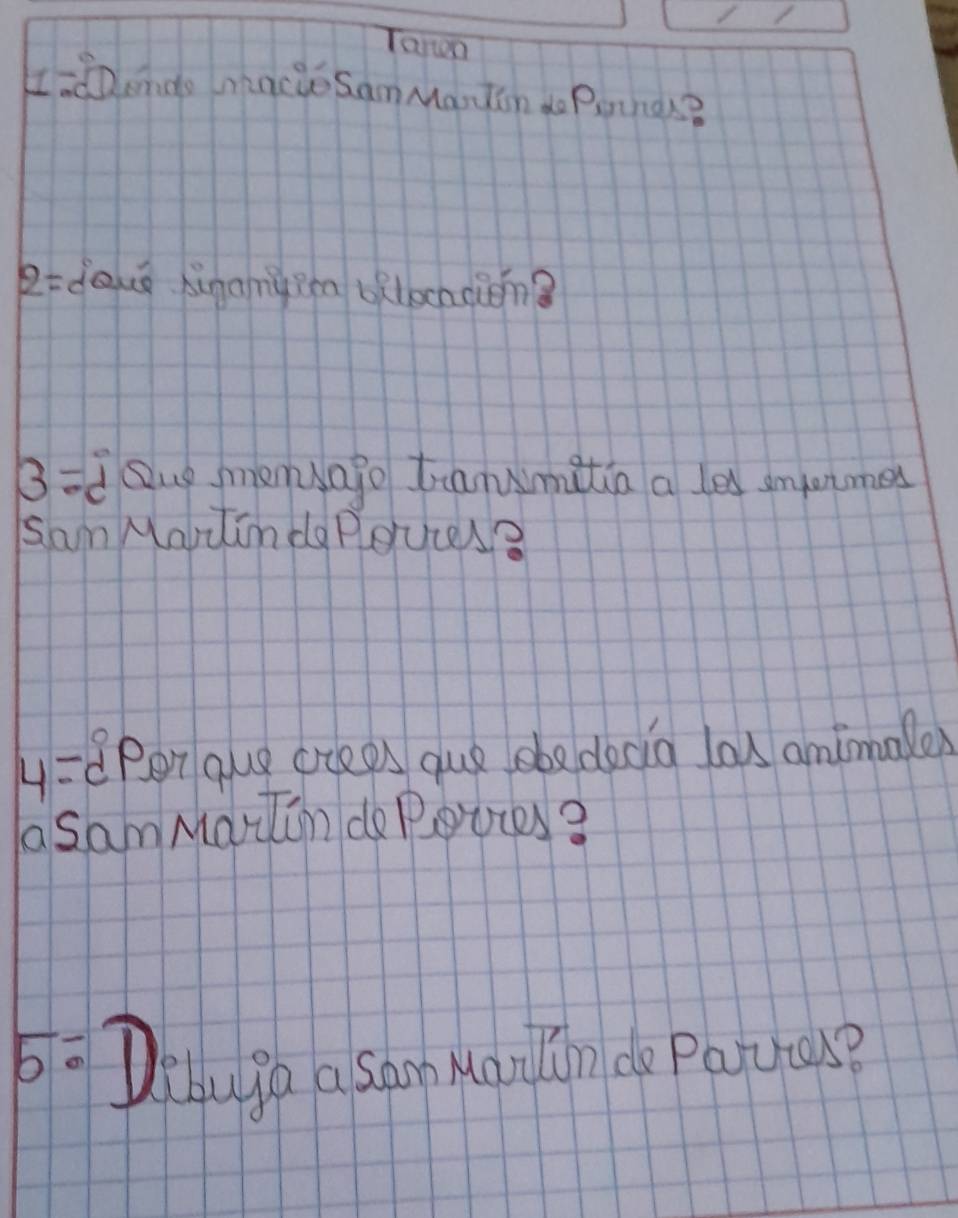 Tarea
1=¿Donde nació San Martín de Porres?
2=¿Qué bilocación?
3=¿Que mensaje transmitía a los enfermos
San Martín de Porres?
4=¿Por que crees que obedecía los animales
a San Martín de Porres?
5= Dibuja a San Martín de Parres?